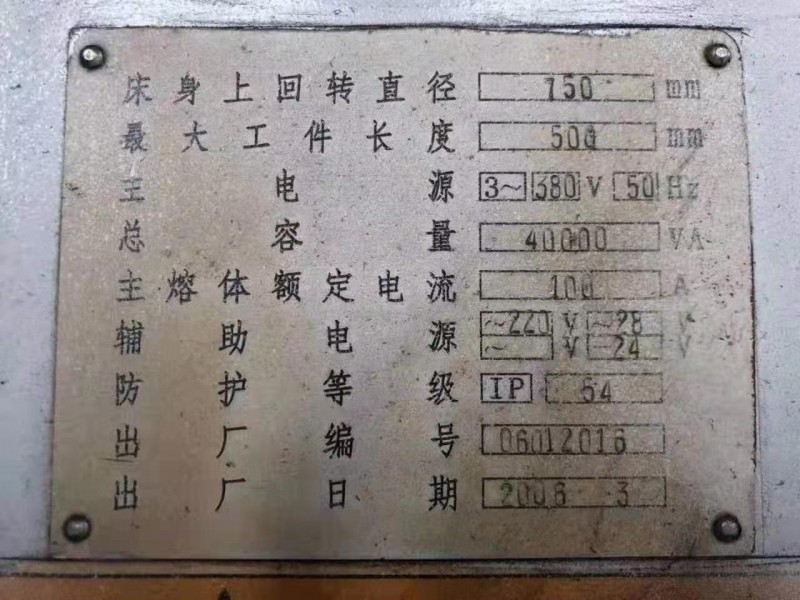 床身上回转直径 750 mm
最大工件长度 500 mm
主电源 3～ 380 V 50 Hz
总容量 40000 VA
主熔体额定电流 100 A
辅助电源 ～220 V ～28 V
～ V 24 V
防护等级 IP 54
出厂编号 06012016
出厂日期 2006 3